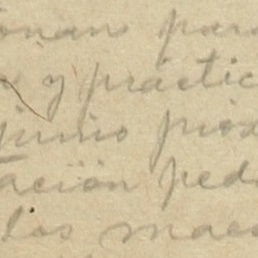 onan para
y práctic
junio próx
tación ped
los maes